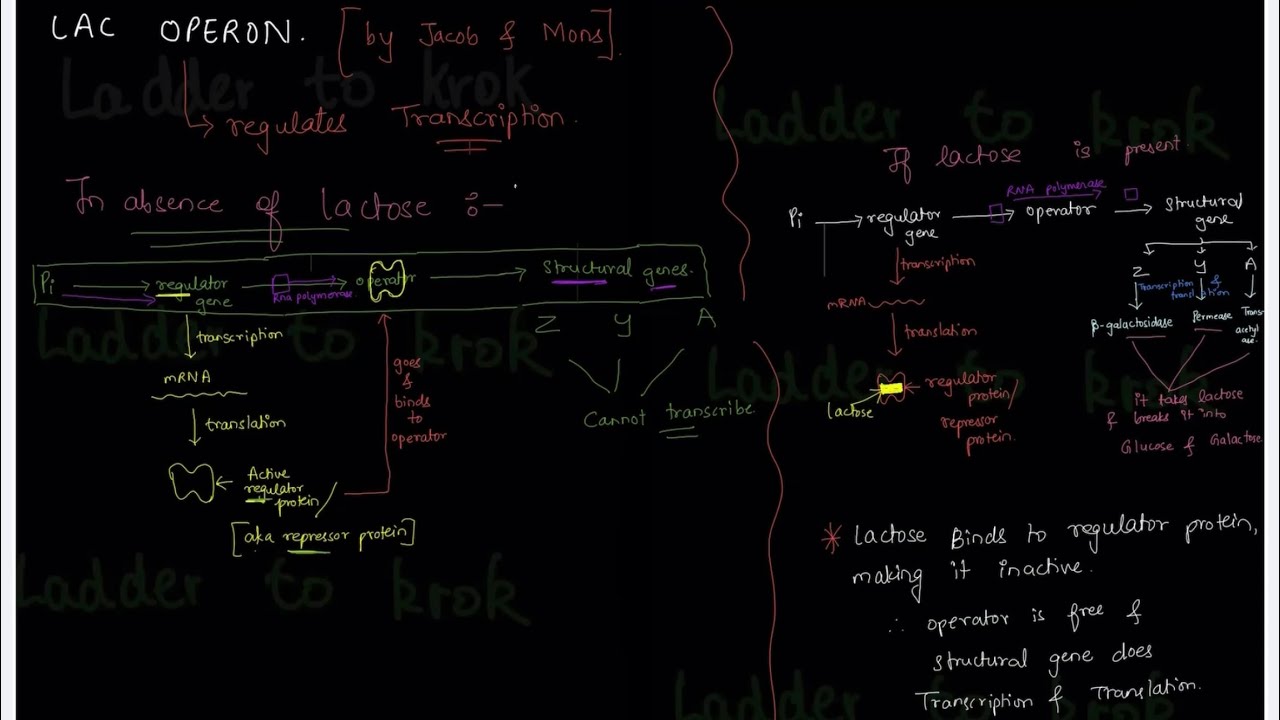 LAC OPERON. [by Jacob & Mons].
↳ regulates Transcription.
In absence of lactose :-
Pi → regulator gene → operator → structural genes.
Rna polymerase
Z Y A
Cannot transcribe
transcription
mRNA
translation
Active regulator protein/
[aka repressor protein]
goes & binds to operator
If lactose is present.
RNA polymerase
Pi → regulator gene → operator → structural gene
transcription
mRNA
translation
lactose
regulator protein/
repressor protein.
Z Y A
Transcription & translation
β-galactosidase Permease Trans acetyl ase.
it takes lactose
& breaks it into
Glucose & Galactose
* Lactose Binds to regulator protein,
making it inactive.
∴ operator is free &
structural gene does
Transcription & Translation.
Ladder to krok
Ladder to krok
Ladder to krok
Ladder to krok
Ladder to krok
Ladder to krok